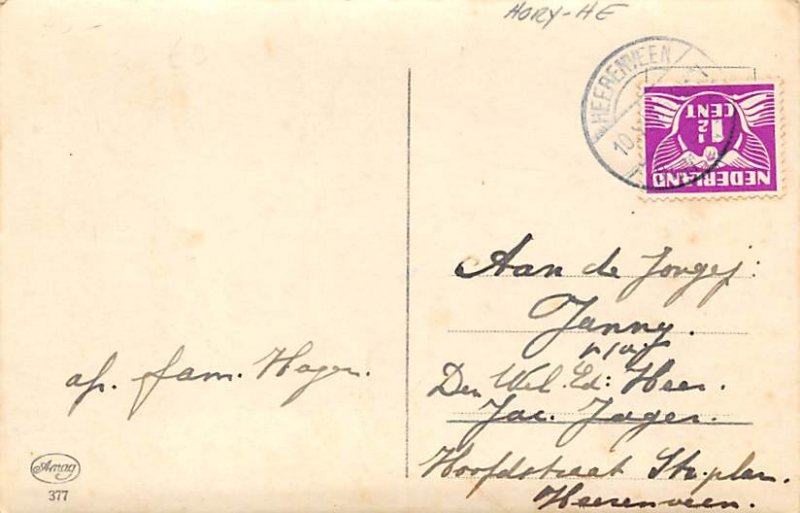 HORY-HE
HEERENVEEN
10.
1½
CENT
NEDERLAND
Aan de Jongej:
Janny.
p/a
Den Wel. Ed: Heer.
Jac. Jager.
Hoofdstraat Str.plan.
Heerenveen.
af. fam. Hagen.
Amag
377